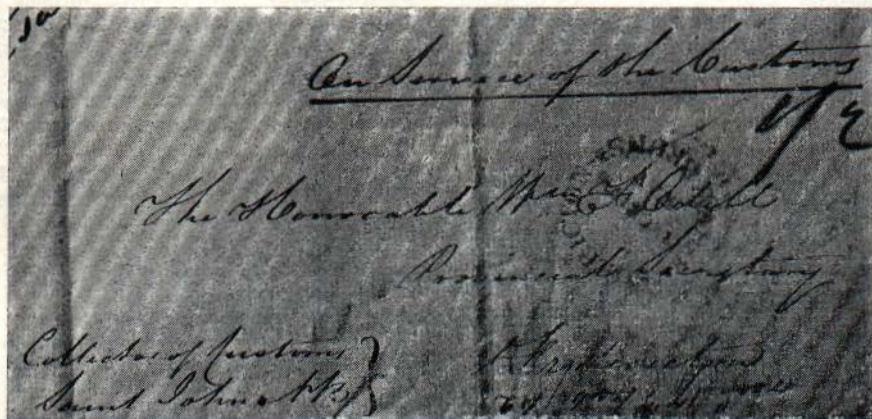 On Service of the Customs
The Honorable Wm F Odell
Provincial Secretary
Collector of Customs
Saint John NB
Fredericton